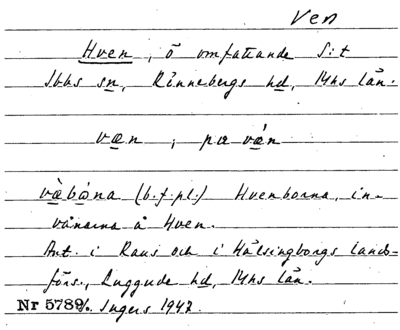 Ven
Hven, ö omfattande S:t
Ibbs sn, Rönnebergs hd, Mhs län.
væn ; pα vǽn
væ̀bòna (b.f.pl.) Hvenborna, in-
vånarna å Hven.
Ant. i Raus och i Hälsingborgs lands-
förs., Luggude hd, Mhs län.
Nr 5789/. Ingers 1947.